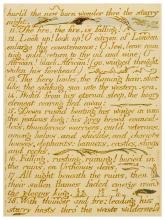 hurld the new born wonder thro the starry
night.
11. The fire, the fire, is falling!
12. Look up! look up! O citizen of London
enlarge thy countenance; O Jew, leave coun-
ting gold! return to thy oil and wine; O
African! black African! (go. winged thought
widen his forehead.)
13. The fiery limbs, the flaming hair, shot
like the sinking sun into the western sea.
14. Wak'd from his eternal sleep, the hoary
element roaring fled away:
15. Down rushd beating his wings in vain
the jealous king: his grey brow'd council-
lors, thunderous warriors, curl'd veterans,
among helms, and shields, and chariots
horses, elephants: banners, castles, slings
and rocks,
16. Falling, rushing, ruining! buried in
the ruins, on Urthona's dens.
17. All night beneath the ruins, then
their sullen flames faded emerge round
the gloomy king,
18. With thunder and fire: leading his
starry hosts thro' the waste wilderness